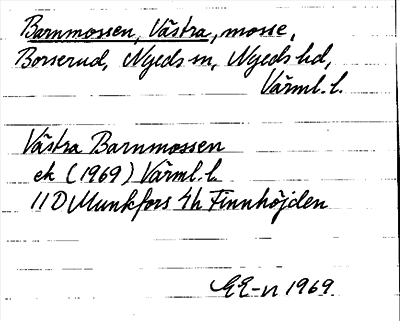 Barnmossen, Västra, mosse,
Borserud, Nyeds sn, Nyeds hd,
Värml. l.
Västra Barnmossen
ek (1969) Värml. l.
11D Munkfors 4h Finnhöjden
EE-n 1969.